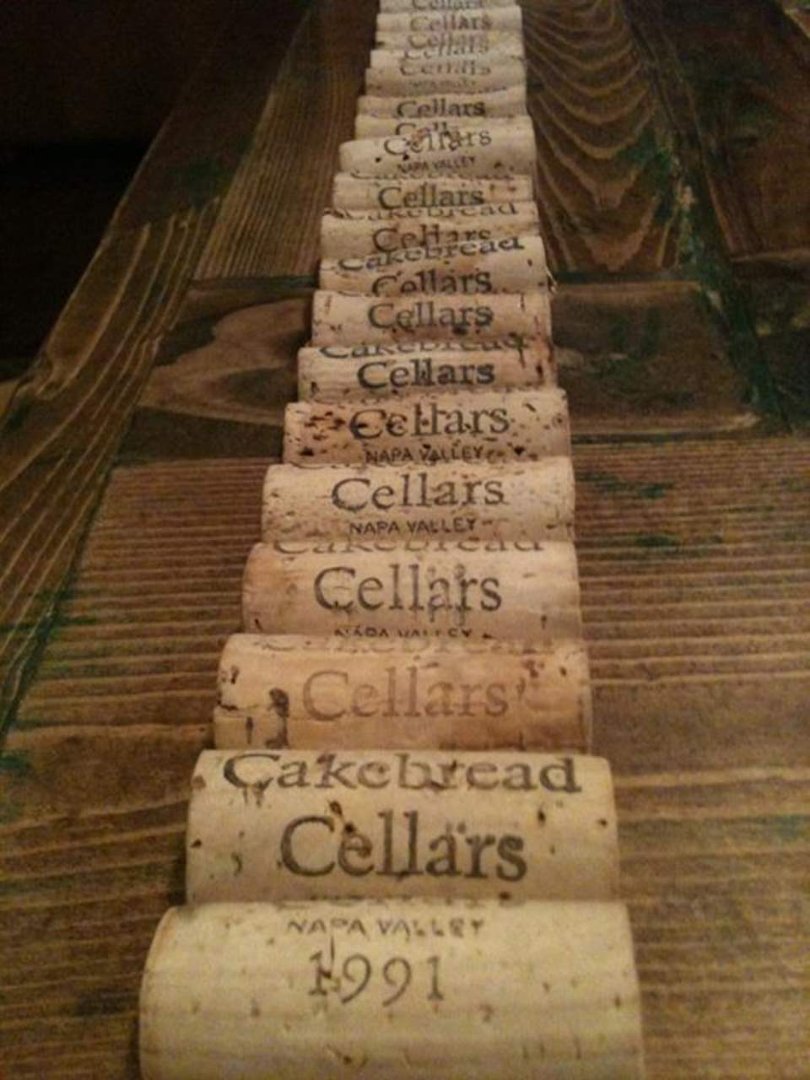 Cellars
Cellars
Cellars
Cellars
Cellars
Cellars
Cellars
NAPA VALLEY
Cellars
Cakebread
Cellars
Cakebread
Cellars
Cellars
Cakebread
Cellars
Cellars
NAPA VALLEY
Cellars
NAPA VALLEY
Cakebread
Cellars
NAPA VALLEY
Cakebread
Cellars
Cakebread
Cellars
NAPA VALLEY
1991